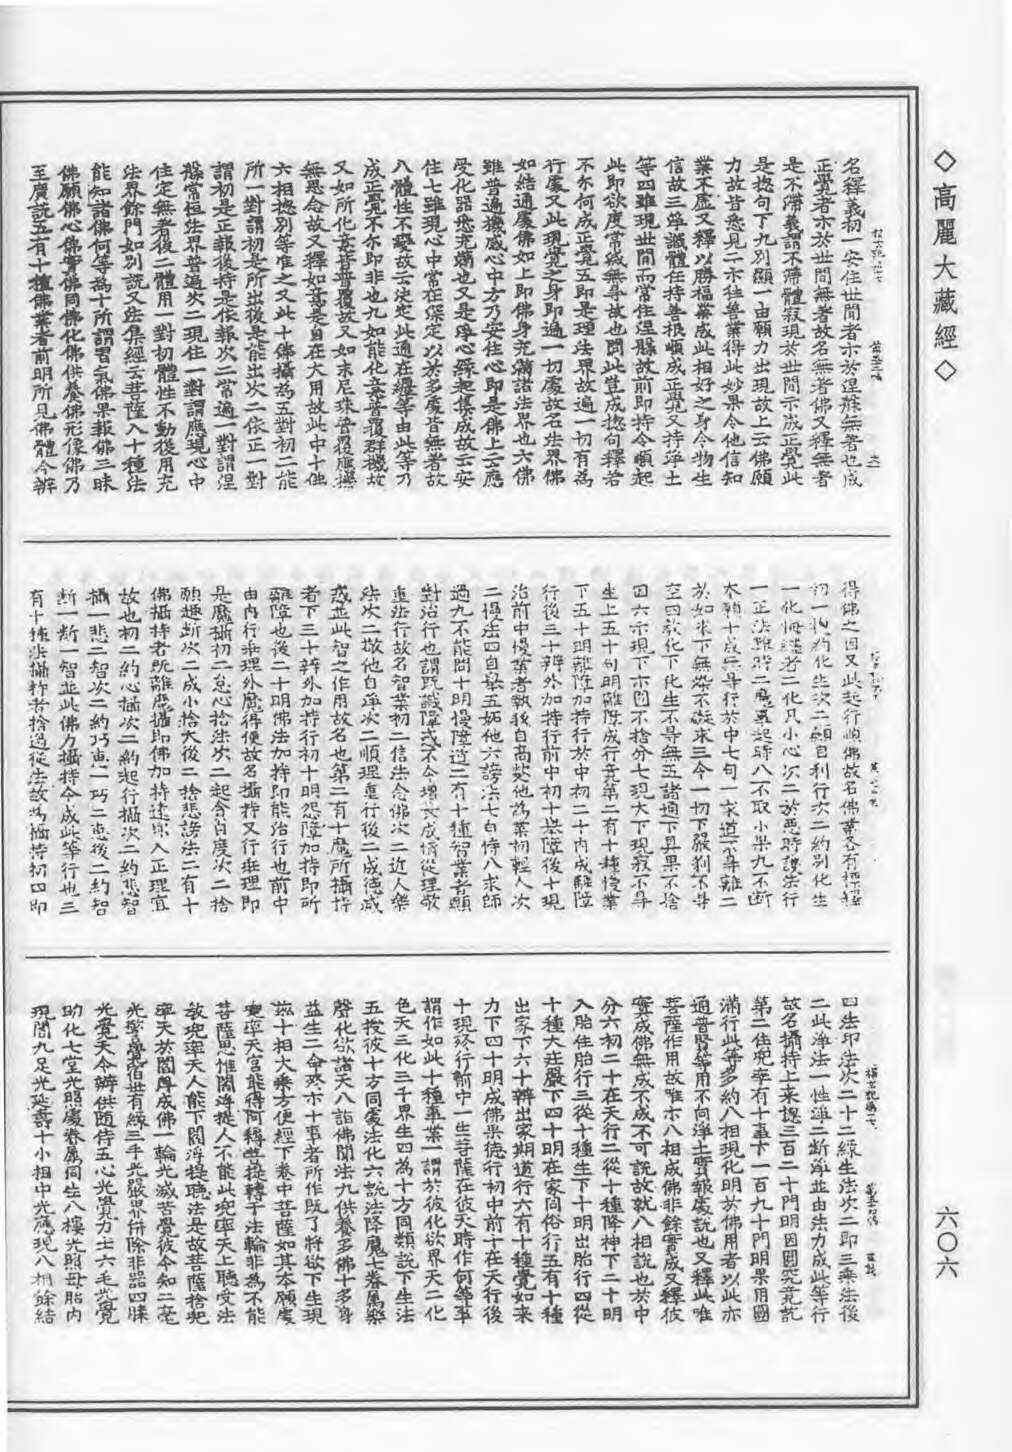 ◇高麗大藏經◇
六〇六
名釋義初一安住世間者亦於涅槃無著也成
正覺者亦於世間無著故名無著佛又釋無著
是不滯義謂不滯體寂現於世間示成正覺此
是揔句下九別顯一由願力出現故上云佛願
力故皆悉見二亦往善業得此妙果令他信知
業不虛又釋以勝福業成此相好之身令物生
信故三舉識體任持善根順成正覺又持淨土
等四雖現世間而常住涅槃故前即持令順起
此即欲度常寂無等故也問此豈成揔句釋若
不尒何成正覺五即是理法界故遍一切有為
行處又此現覺之身即遍一切處故名法界佛
如結通處佛如上即佛身充滿諸法界也六佛
雖普遍機感心中方乃安住心即是佛上云應
受化器悉充滿也又是淨心緣起集成故云安
住七雖現心中常在深定以於多處皆無著故
八體性不擧故云決定此通在纏等由此等乃
成正覺不尒即非也九如能化衆普覆群機故
又如所化衆普覆故又如末尼珠普覆應機
無思念故又釋如意是自在大用故此中十佛
六相揔別等准之又此十佛攝為五對初二能
所一對謂初是所出後是能出次二依正一對
謂初是正報後持是依報次二常遍一對謂涅
槃常恒法界普遍次二現住一對謂應現心中
住定無著後二體用一對初體性不動後用充
法界餘門如別說又法集經云菩薩入十種法
能知諸佛何等為十所謂習氣佛果報佛三昧
佛願佛心佛實佛同佛化佛供養佛形像佛乃
至廣說五有十種佛業者前明所見佛體今辨
得佛之因又此起行順佛故名佛業各有標釋結
初一揔約化生次二願自利行次二約別化生
一化悔纏者二化凡小心次二於惡時護法行
一正法難時二魔裏起時八不取小果九不斷
本願十成無等行於中七句一求道不等離二
於如來下無染不疑求三令一切下嚴刹不等
空四教化下化生不等無五諸通下具果不捨
因六示現下亦因不捨分七現大下現寂不等
生上五十句明離障成行竟第二有十種慢業
下五十明離障加持行於中初二十內成離障
行後三十辨外加持行前中初十舉障後十現
治前中慢業者執我自高蔑他為業初輕人次
二慢法四自舉五妬他六謗法七自恃八求師
過九不能問十明慢障道二有十種智業者願
對治行也謂既識障或不令增長成揔從理敬
重非行故名智業初二信法念佛次二近人樂
法次二敬他自淨次二順理進行後二成德滅
惑並此智之作用故名也第二有十魔所攝持
者下三十辨外加持行初十明惡障加持即所
離障也後二十明佛法加持即能治行也前中
由內行乖理外魔得便故名攝持又行乖理即
是魔攝初二怠心捨法次二起貪自度次二捨
願趣斷次二成小捨大後二捨悲謗法二有十
佛攝持者既離魔攝即佛加持遠邪入正理宜
故也初二約心攝次二約起行攝次二約悲智
攝一悲二智次二約巧惠一巧二惠後二約智
斷一斷一智並此佛力攝持令成此等行也三
有十種法攝持者捨過從法故為攝持初四即
四法印法次二十二緣生法次二即三乘法後
二此淨法一性淨二斷淨並由法力成此等行
故名攝持上來揔三百二十門明因圓究竟訖
第二住兜率有十事下一百九十門明果用圓
滿行此等多約八相現化明於佛用者以此亦
通普賢等用不向淨土實報處說也又釋此唯
菩薩作用故唯亦八相成佛非餘實成又釋彼
實成佛無成不成不可說故就八相說也於中
分六初二十在天行二從十種降神下二十明
入胎住胎行三從十種生下十明出胎行四從
十種大莊嚴下四十明在家同俗行五有十種
出家下六十辨出家期道行六有十種覺如來
力下四十明成佛果德行初中前十在天行後
十現終行前中一生菩薩在彼天時作何等事
謂作如此十種事業一謂於彼化欲界天二化
色天三化三千界生四為十方同類說下生法
五授彼十方同處法化六說法降魔七奏萬樂
聲化欲諸天八詣佛聞法九供養多佛十多身
益生二命終亦十事者所作既了將欲下生現
茲十相大乘方便經下卷中菩薩如其本願處
兜率天宮能得阿耨菩提轉于法輪非為不能
菩薩思惟閻浮提人不能此兜率天上聽受法
教兜率天人能下閻浮提聽法是故菩薩捨兜
率天於閻浮成佛一輪光滅苦覺彼令知二毫
光警覺宿世有緣三手光嚴界併除非器四膝
光覺天令辦供隨侍五心光覺力士六毛光覺
助化七堂光照處眷屬同生八樓光照母胎內
現閣九足光延壽十小相中光應現八相餘結